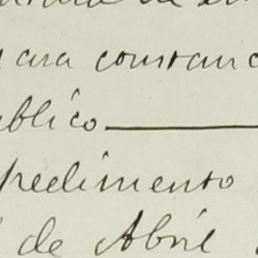 para constanc
ublico
pedimento
de Abril